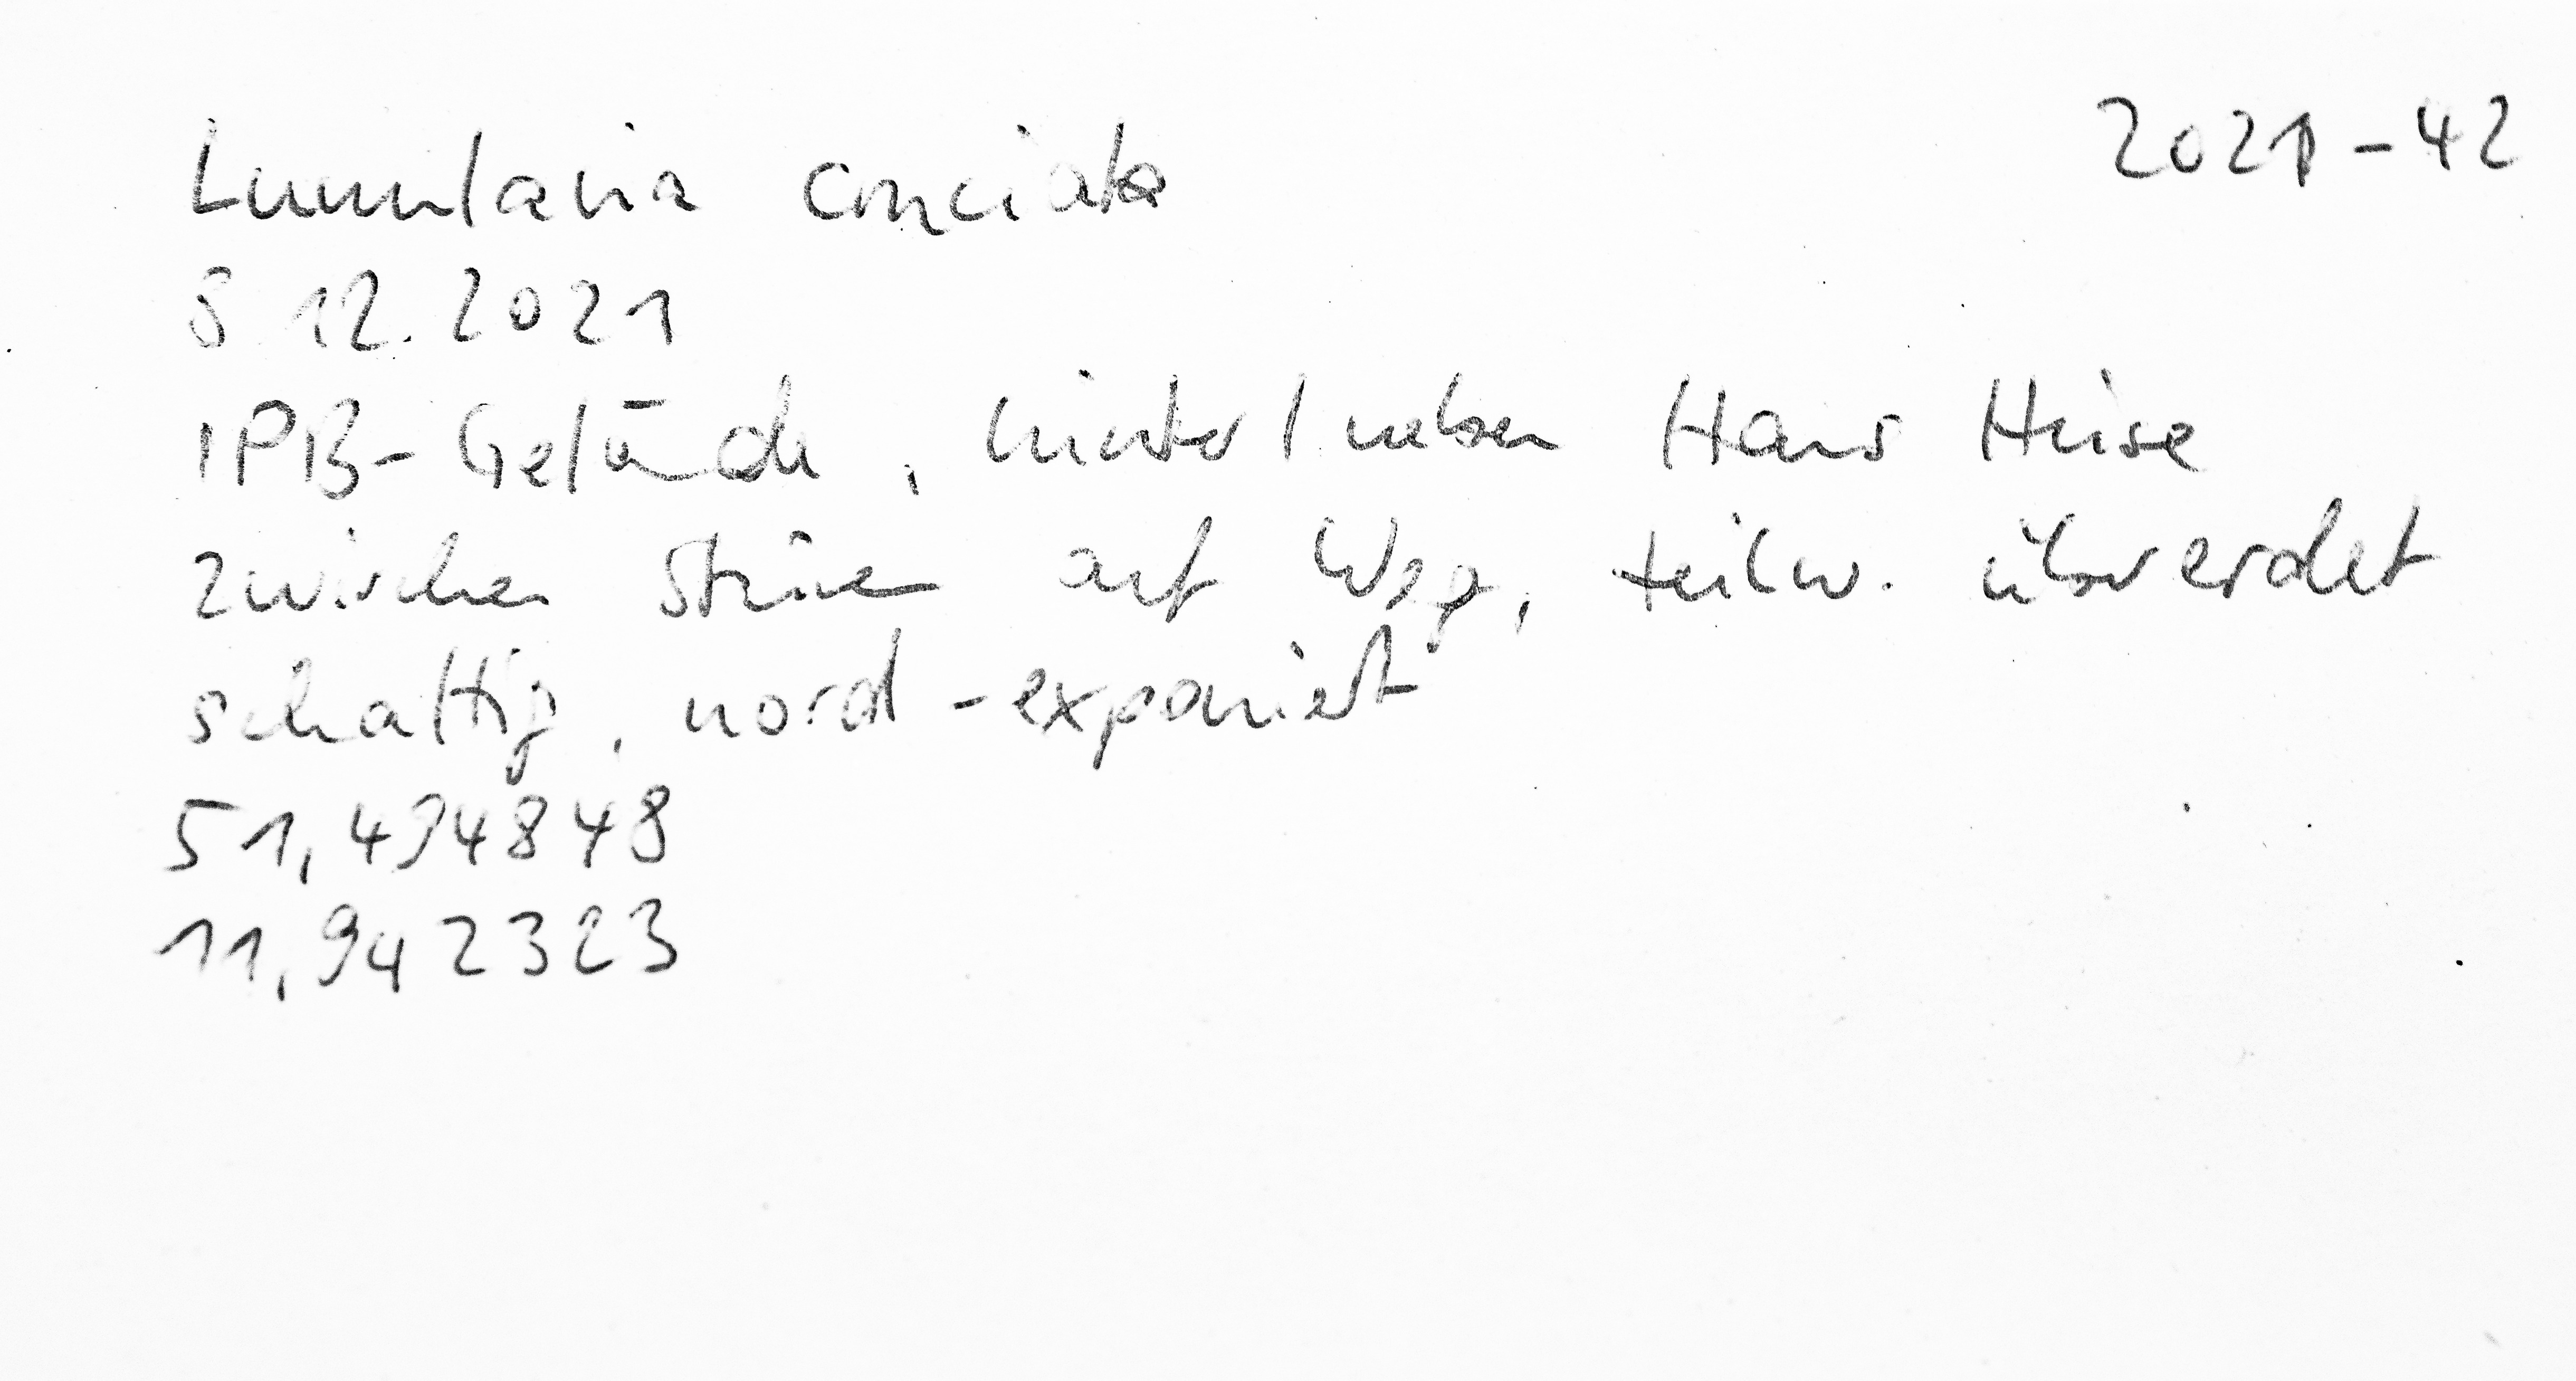 Lunularia cruciata 2021-42
8.12.2021
IPB-Gelände, hinter/neben Haus Heise
zwischen Steinen auf Weg, teilw. übererdet
schattig, nord-exponiert
51,494848
11,942323